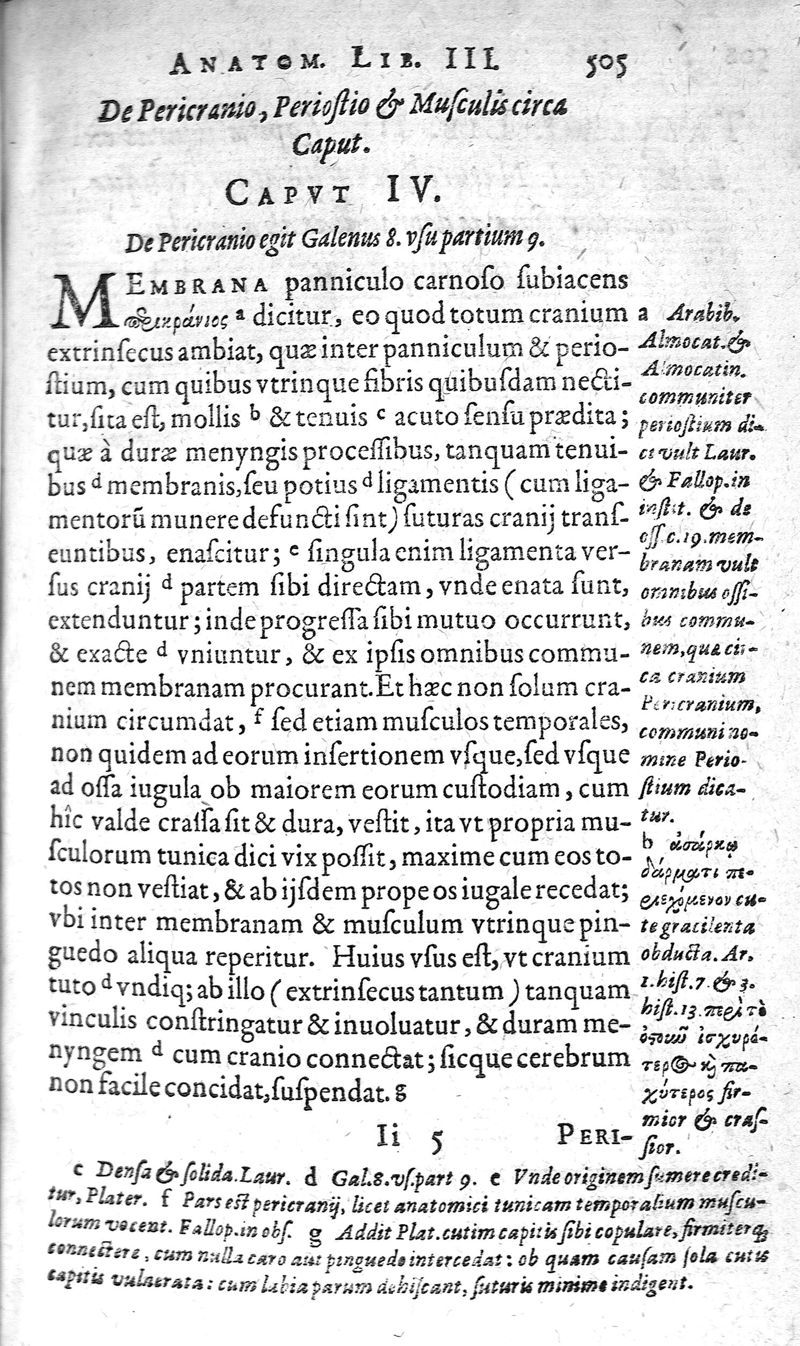 ANATOM. LIB. III. 505
De Pericranio, Periostio & Musculis circa
Caput.
CAPVT IV.
De Pericranio egit Galenus 8. vsu partium 9.
MEMBRANA panniculo carnoſo ſubiacens
περικράνιος a dicitur, eo quod totum cranium
extrinſecus ambiat, quæ inter panniculum & perio-
ſtium, cum quibus vtrinque fibris quibuſdam necti-
tur, ſita eſt, mollis b & tenuis c acuto ſenſu prædita;
quæ à duræ menyngis proceſſibus, tanquam tenui-
bus d membranis, ſeu potius d ligamentis (cum liga-
mentorū munere defuncti ſint) ſuturas cranij tranſ-
euntibus, enaſcitur; e ſingula enim ligamenta ver-
ſus cranij d partem ſibi directam, vnde enata ſunt,
extenduntur; inde progreſſa ſibi mutuo occurrunt,
& exacte d vniuntur, & ex ipſis omnibus commu-
nem membranam procurant. Et hæc non ſolum cra-
nium circumdat, f ſed etiam muſculos temporales,
non quidem ad eorum inſertionem vſque, ſed vſque
ad oſſa iugula ob maiorem eorum cuſtodiam, cum
hîc valde craſſa ſit & dura, veſtit, ita vt propria mu-
ſculorum tunica dici vix poſſit, maxime cum eos to-
tos non veſtiat, & ab ijſdem prope os iugale recedat;
vbi inter membranam & muſculum vtrinque pin-
guedo aliqua reperitur. Huius vſus eſt, vt cranium
tuto d vndiq; ab illo (extrinſecus tantum) tanquam
vinculis conſtringatur & inuoluatur, & duram me-
nyngem d cum cranio connectat; ſicque cerebrum
non facile concidat, ſuſpendat. g
Ii 5 PERI-
a Arabib.
Almocat. &
Almocatin.
communiter
perioſtium di-
ci vult Laur.
& Fallop. in
inſtit. & de
oſſ. c. 19. mem-
branam vult
omnibus oſſi-
bus commu-
nem, quæ cir-
ca cranium
Pericranium,
communi no-
mine Perio-
ſtium dica-
tur.
b ἀσάρκῳ
δέρματι πε-
ριεχόμενον cu-
te gracilenta
obducta. Ar.
1. hiſt. 7. & 3.
hiſt. 13. περὶ τὸ
ὀστοῦν ἰσχυρό-
τερος καὶ πα-
χύτερος fir-
mior & craſ-
ſior.
c Denſa & ſolida. Laur. d Gal. 8. vſ. part 9. e Vnde originem ſumere credi-
tur, Plater. f Pars eſt pericranij, licet anatomici tunicam temporalium muſcu-
lorum vocent. Fallop. in obſ. g Addit Plat. cutim capitis ſibi copulare, firmiterq;
connectere, cum nulla caro aut pinguedo intercedat: ob quam cauſam ſola cutis
capitis vulnerata: cum labia parum dehiſcant, ſuturis minime indigent.